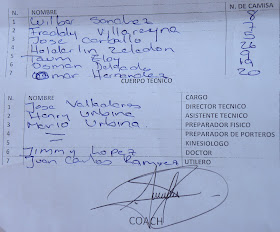 N. NOMBRE N. DE CAMISA
1 Wilber Sanchez 8
2 Freddy Villareyna
3 Jose Carballo 5
4 Holderlin Zeledon 26
5 Taum Eloy 9
6 Osman Delgado 19
7 Omar Hernandez 20
CUERPO TECNICO
N. NOMBRE CARGO
1 Jose Valladares DIRECTOR TECNICO
2 Henry Urbina ASISTENTE TECNICO
3 Mario Urbina PREPARADOR FISICO
4 PREPARADOR DE PORTEROS
5 KINESIOLOGO
6 Jimmy Lopez DOCTOR
7 Juan Carlos Ramirez UTILERO
COACH